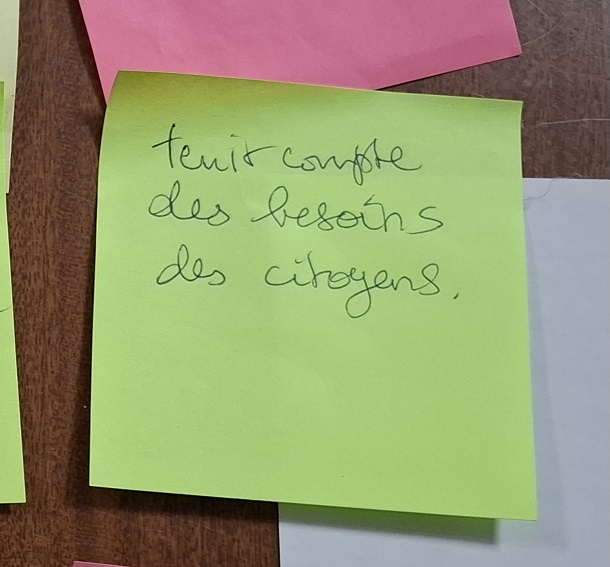 tenir compte
des besoins
des citoyens.